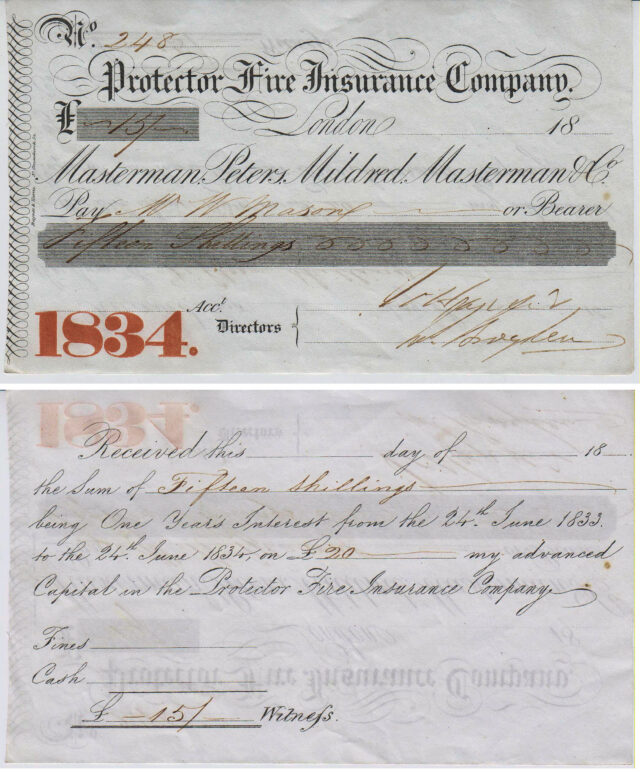 No. 248
Protector Fire Insurance Company.
£ 15/-
London 18
Masterman, Peters, Mildred, Masterman & Co
Pay Mr W Mason or Bearer
Fifteen Shillings
Acct.
1834.
Directors
Received this day of 18
the Sum of Fifteen shillings
being One Years Interest from the 24th. June 1833.
to the 24th. June 1834, on £20 my advanced
Capital in the Protector Fire Insurance Company.
Fines
Cash
£ 15/- Witness.